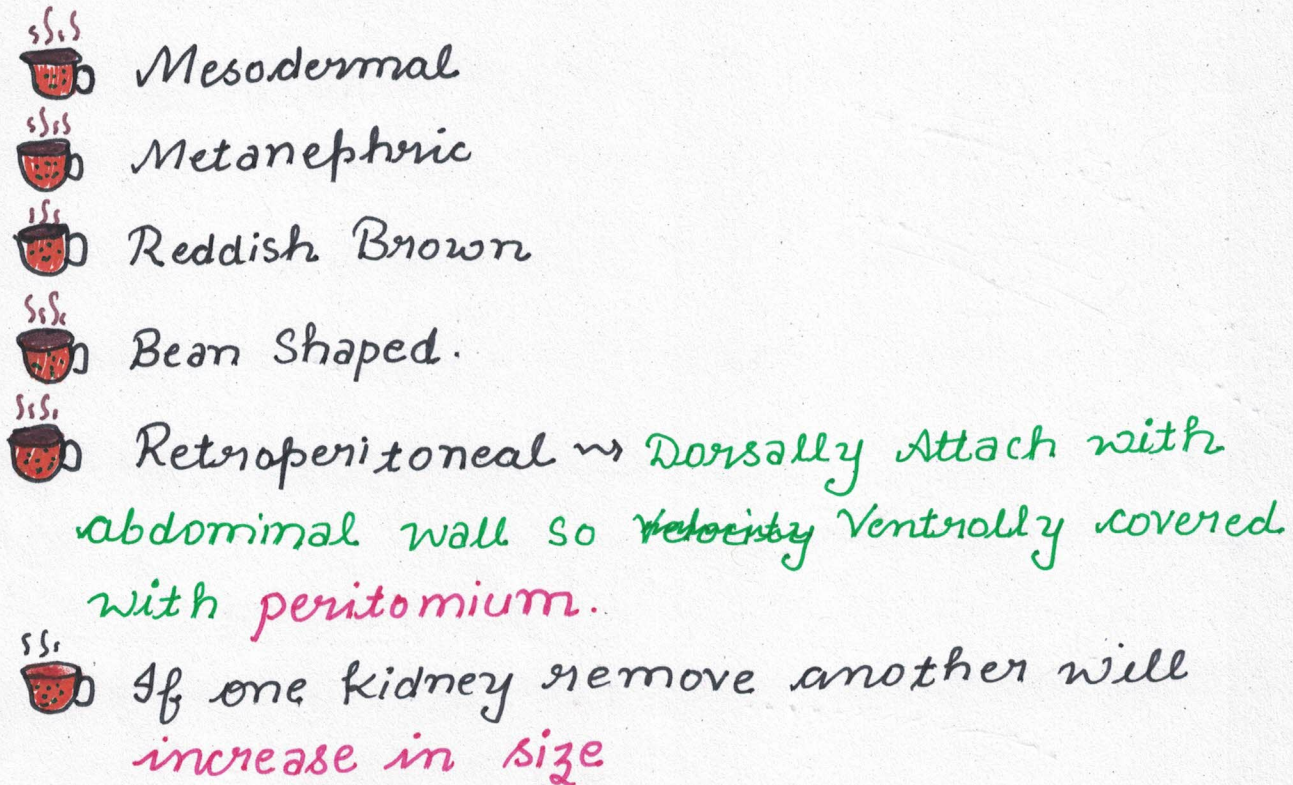 Mesodermal
Metanephric
Reddish Brown
Bean Shaped.
Retroperitoneal ⇝ Dorsally Attach with
abdominal wall so Ventrally covered
with peritomium.
If one kidney remove another will
increase in size